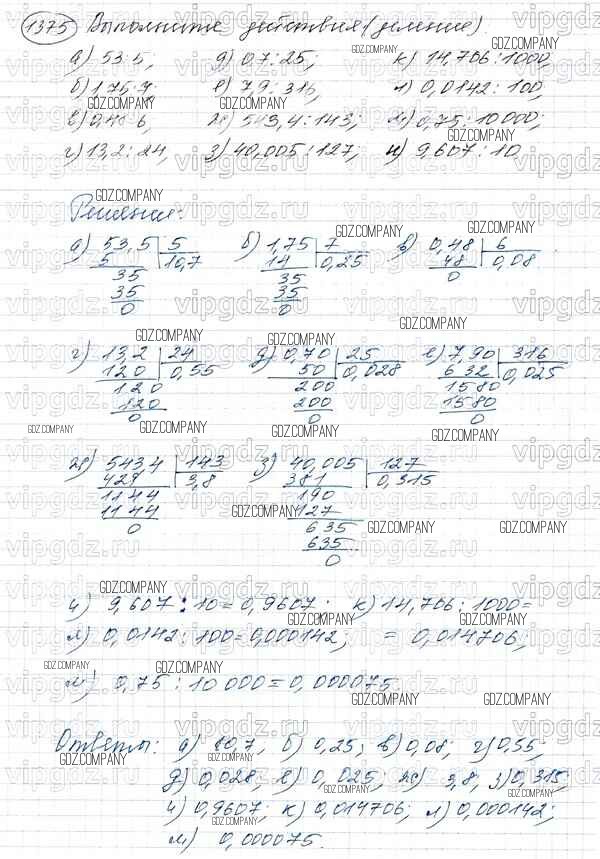 1375 Выполните действия (деление).
а) 53:5; д) 0,7:25; к) 14,706:1000;
GDZ.COMPANY
б) 1,75:7; е) 7,9:316; л) 0,0142:100;
в) 0,48:6 ж) 543,4:143; м) 0,75:10000;
г) 13,2:24; з) 40,005:127; и) 9,607:10
Решение:
а) 53,5 | 5 б) 1,75 | 7 в) 0,48 | 6
5 10,7 14 0,25 48 0,08
35 35 0
35 35
0 0
г) 13,2 | 24 д) 0,70 | 25 е) 7,90 | 316
120 0,55 50 0,028 632 0,025
120 200 1580
120 200 1580
0 0 0
ж) 543,4 | 143 з) 40,005 | 127
429 3,8 381 0,315
1144 190
1144 127
0 635
635
0
и) 9,607 : 10 = 0,9607; к) 14,706 : 1000 =
л) 0,0142 : 100 = 0,000142; = 0,014706;
м) 0,75 : 10 000 = 0,000075
Ответы: а) 10,7, б) 0,25; в) 0,08; г) 0,55;
д) 0,028, е) 0,025; ж) 3,8, з) 0,315,
и) 0,9607; к) 0,014706; л) 0,000142;
м) 0,000075.
vipgdz.ru